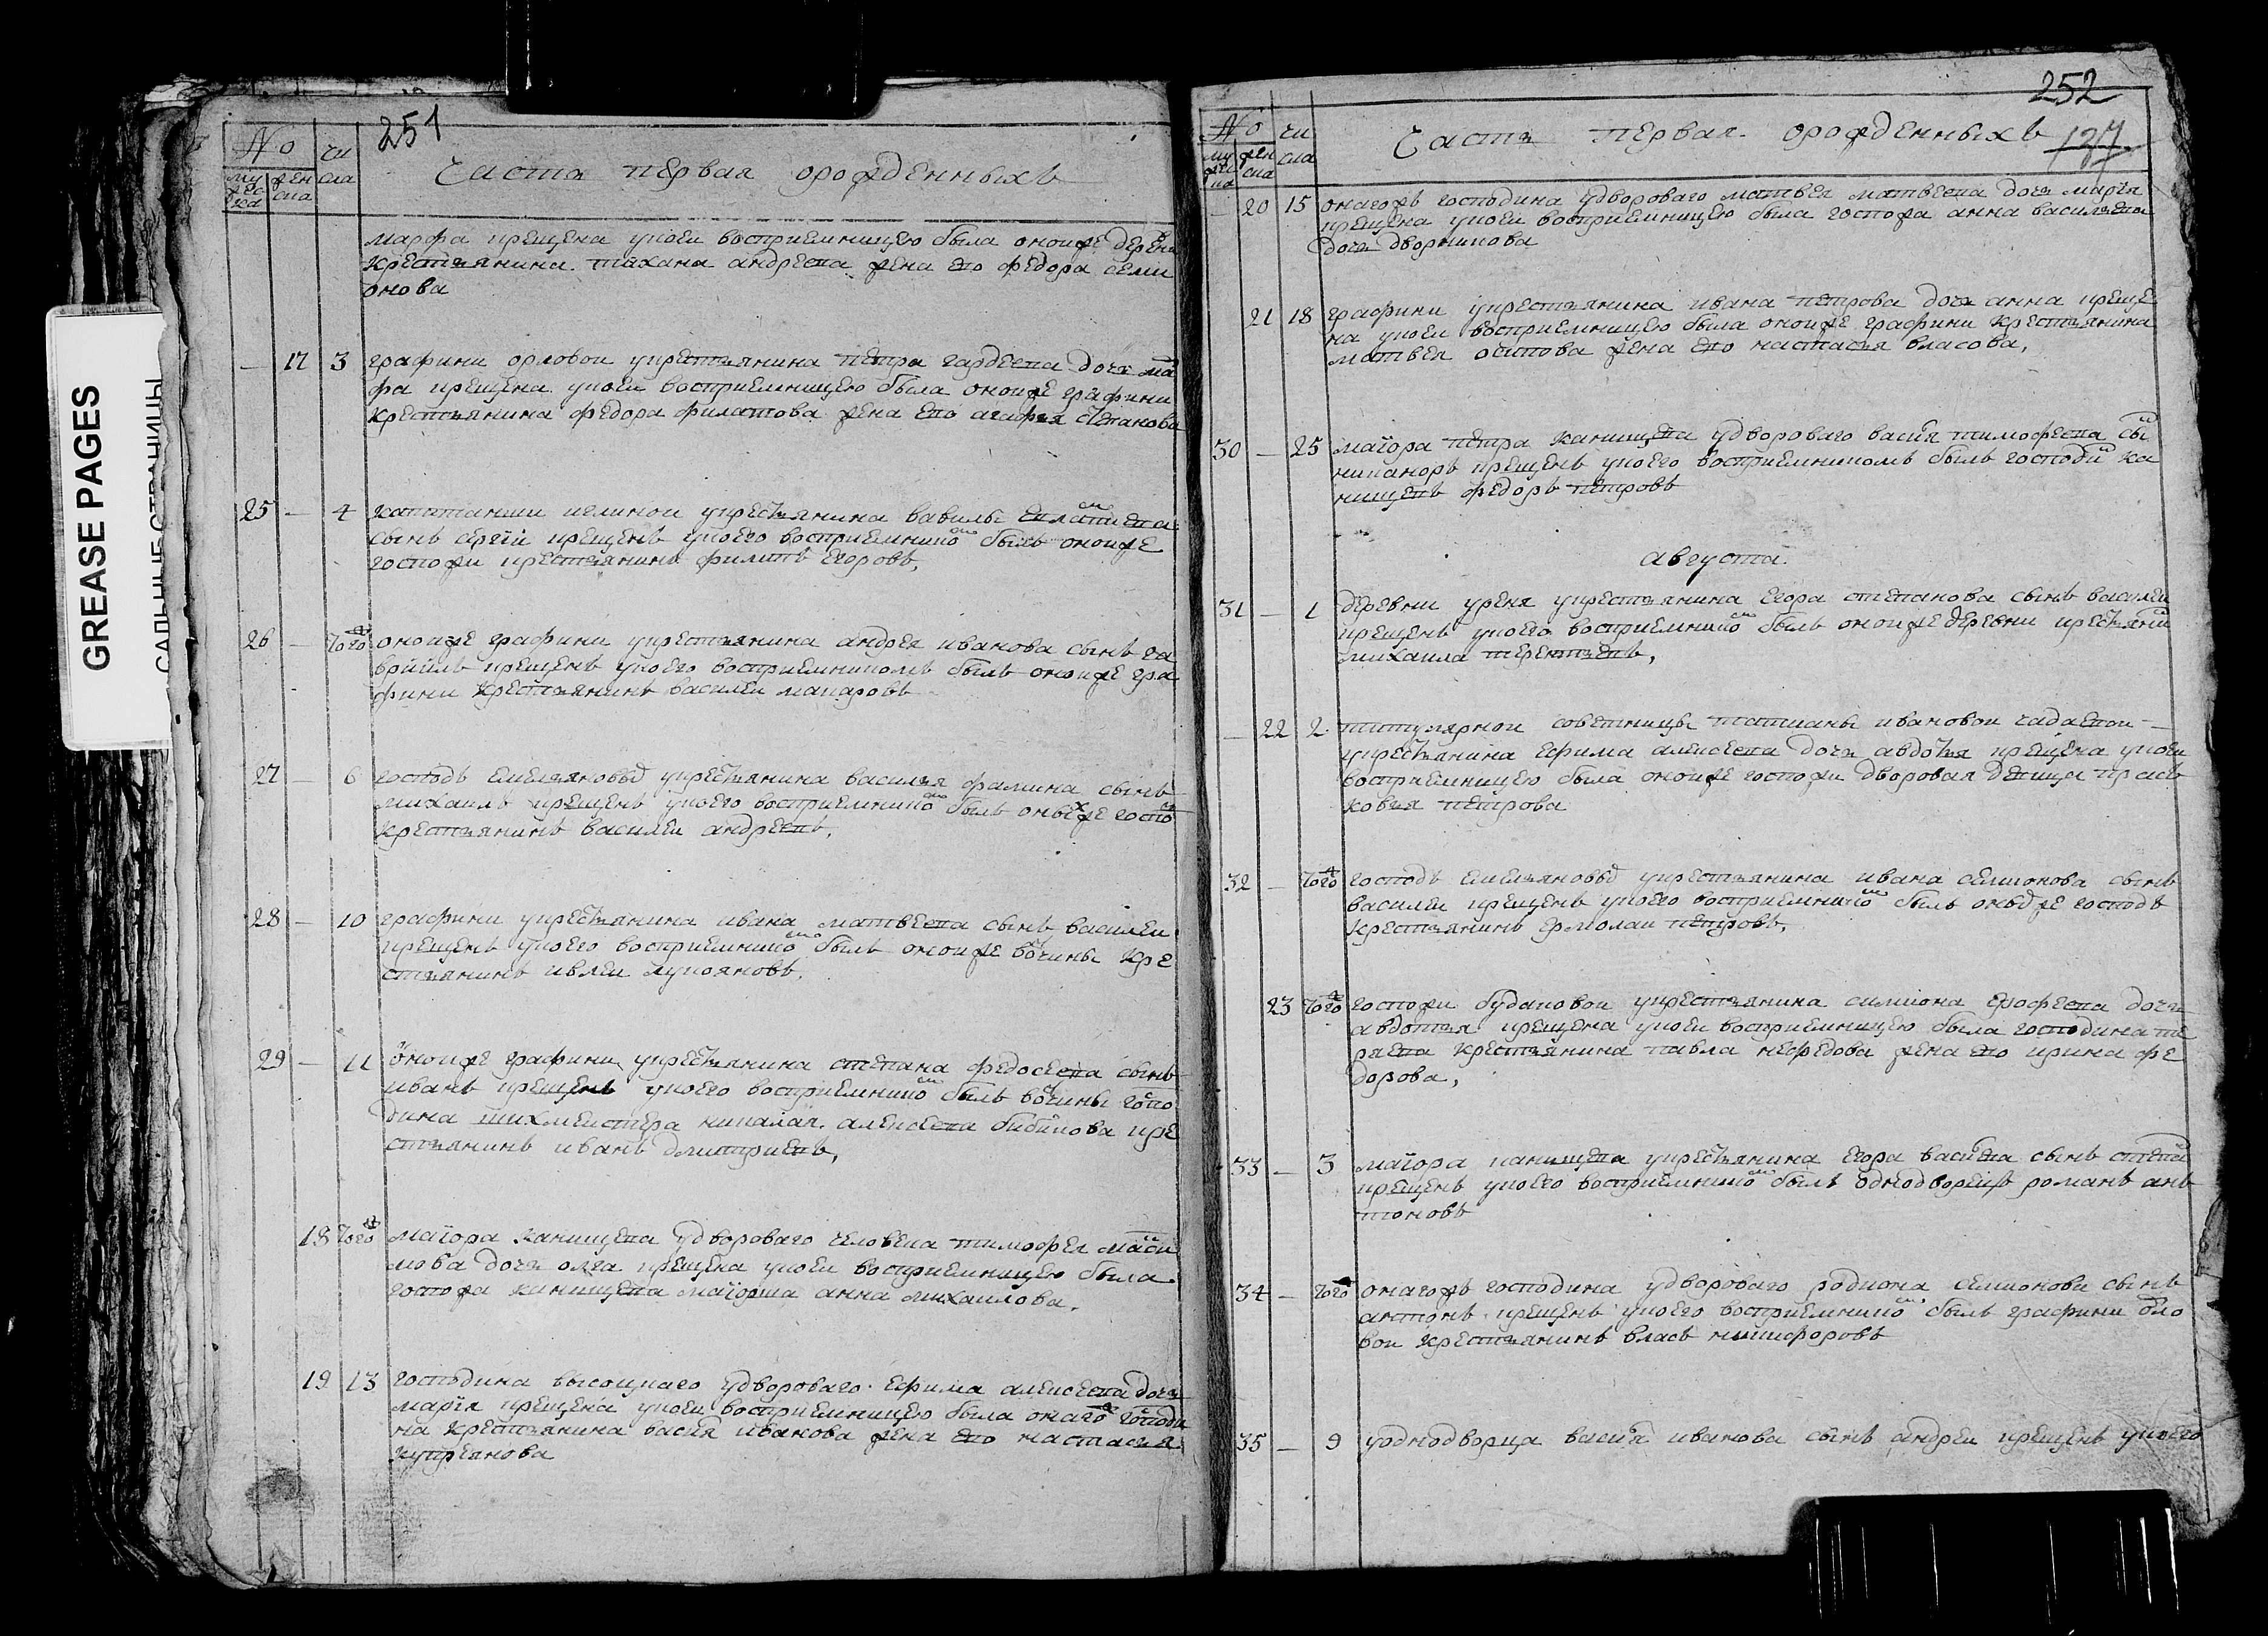 GREASE PAGES
САЛЬНЫЕ СТРАНИЦЫ
251
No
чи
сла
му
жес
ка
жен
ска
Часть первая орожденныхъ
марфа крещена укоеи восприемницею была оноиже дерѣвн
крестьянина андреева жена ево федора семи
онова
17 3 графини орловои укрестьянина петра гардеева дочь ма
фа крещена укоеи восприемницею была оноиже графини
крестьянина федора филатова жена ево агафья степанова
25 — 4 капитанши укрестьянина вавилы
сынъ сергіи крещенъ укоего восприемнико былъ оноиже
госпожи крестьянинъ филипъ егоровъ,
26 — того оноиже графини укрестьянина андрея иванова сынъ га
врйилъ крещенъ укоего восприемникомъ былъ оноиже гра
фини крестьянинъ василеи макаровъ
27 — 6 господъ емельяновыхъ укрестьянина василья фамина сынъ
михаилъ крещенъ укоего восприемнико былъ оныхже госпо
крестьянинъ василеи андреевъ,
28 — 10 графини укрестьянина ивана матвеева сынъ василеи
крещенъ укоего восприемнико былъ оноиже вочины кре
стьянинъ ивлеи лукояновъ,
29 — 11 оноиже графини укрестьянина степана федосеева сынъ
иванъ крещенъ укоего восприемнико былъ вочины госпо
дина шихмеистера алексеева бибикова кре
стьянинъ иванъ дмитриевъ,
18 того маіора канищева удвороваго человека тимофея макси
мова дочь олга крещена укоеи восприемницею была
госпожа канищева маіорша анна михаилова,
19 13 господина высоцкаго удвороваго ефима алексеева дочь
марія крещена укоеи восприемницею была онаго господи
на крестьянина васия иванова жена ево настасья
купреянова
252
127
No
чи
сла
му
жес
ка
жен
ска
Часть первая орожденныхъ
20 15 онагожъ господина удвороваго матвея матвеева дочь марія
крещена укоеи восприемницею была госпожа анна васильева
дочь дворникова
21 18 графини укрестьянина ивана петрова дочь анна креще
на укоеи восприемницею была оноиже графини крестьянина
матвея осипова жена ево настасья власова,
30 — 25 маіора петра канищева удвороваго васия тимофеева сы
никаноръ крещенъ укоего восприемникомъ былъ господи ка
нищевъ федоръ петровъ
августа
31 — 1 деревни уреня укрестьянина егора степанова сынъ василеи
крещенъ укоего восприемнико былъ оноиже деревни крестьяни
михаила терентьевъ,
22 2 титулярнои советницы татианы ивановои чадаевои
укрестьянина ефима алексеева дочь авдотья крещена укоеи
восприемницею была оноиже госпожи дворовая девица прас
ковья петрова
32 — того господъ емельяновыхъ укрестьянина ивана семионова сынъ
василеи крещенъ укоего восприемнико былъ оныхже господъ
крестьянинъ ермолаи петровъ,
23 того госпожи будаковои укрестьянина симиона ерофеева дочь
авдотья крещена укоеи восприемницею была господина те
ряева крестьянина павла нефедова жена ево ирина фе
дорова,
33 — 3 маіора канищева укрестьянина егора васиева сынъ степа
крещенъ укоего восприемнико былъ однодворецъ романъ ан
тоновъ
34 — того онагожъ господина удвороваго родиона семионова сынъ
антонъ крещенъ укоего восприемнико былъ графини орло
вои крестьянинъ власъ никифоровъ
35 — 9 уоднодворца васия иванова сынъ андреи крещенъ укоего